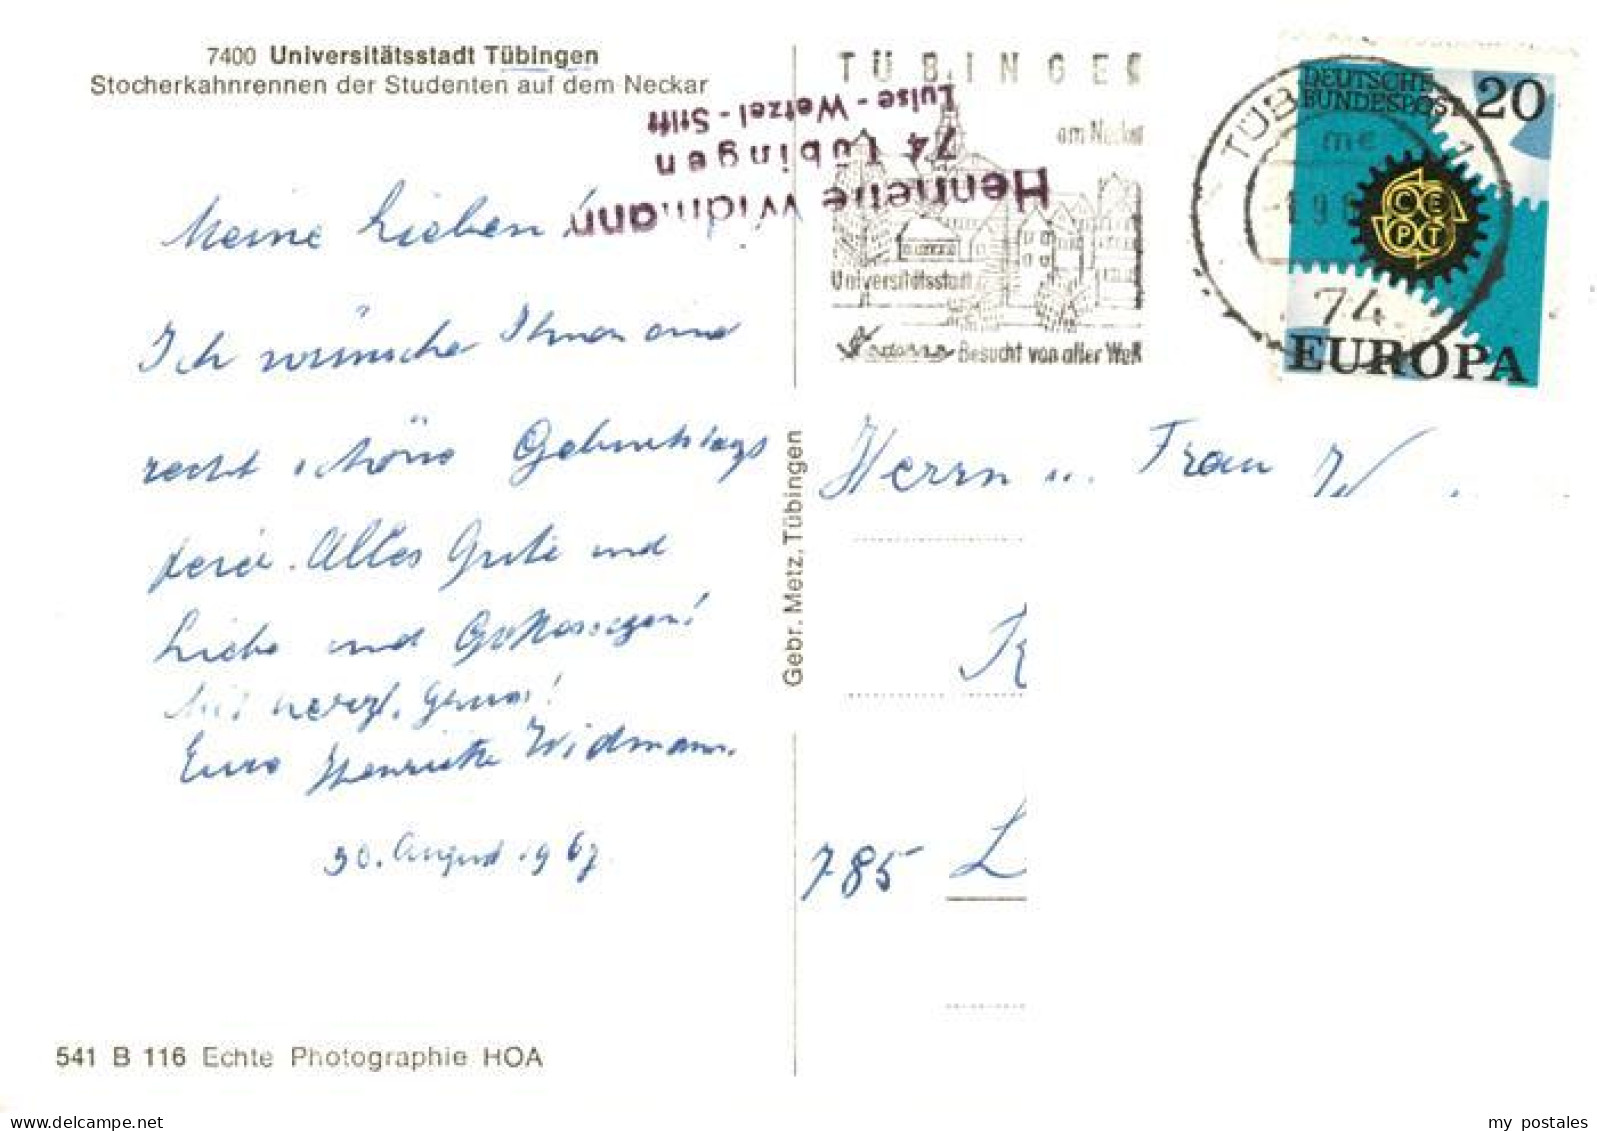 7400 Universitätsstadt Tübingen
Stocherkahnrennen der Studenten auf dem Neckar
Henriette Widmann
74 Tübingen
Luise-Wetzel-Stift
TÜBINGEN
am Neckar
Universitätsstadt
Besucht von aller Welt
TÜB 1
me
74
DEUTSCHE
BUNDESPOST 20
CEPT
EUROPA
Meine Lieben!
Ich wünsche Ihnen eine
recht schöne Geburtstags
feier. Alles Gute und
Liebe und Gottessegen!
Mit herzl. Gruss!
Eure Henriette Widmann.
30. August 1967
Gebr. Metz, Tübingen
Herrn u. Frau W
K
785 L
541 B 116 Echte Photographie HOA
delcampe.net
my_postales